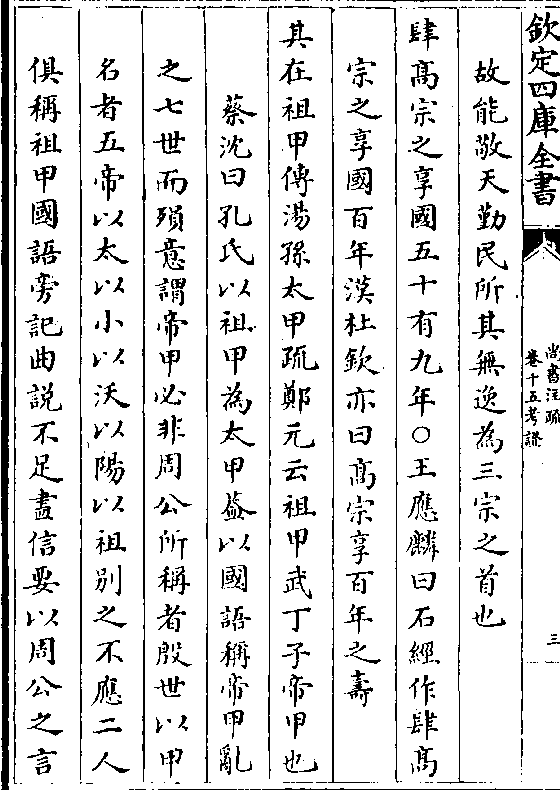 欽定四庫全書
尚書注疏
卷十五考證
三
故能敬天勤民所其無逸為三宗之首也
肆髙宗之享國五十有九年○王應麟曰石經作肆髙
宗之享國百年漢杜欽亦曰髙宗享百年之壽
其在祖甲傳湯孫太甲疏鄭元云祖甲武丁子帝甲也
蔡沈曰孔氏以祖甲為太甲葢以國語稱帝甲亂
之七世而殞意謂帝甲必非周公所稱者殷世以甲
名者五帝以太以小以沃以陽以祖别之不應二人
俱稱祖甲國語旁記曲說不足盡信要以周公之言